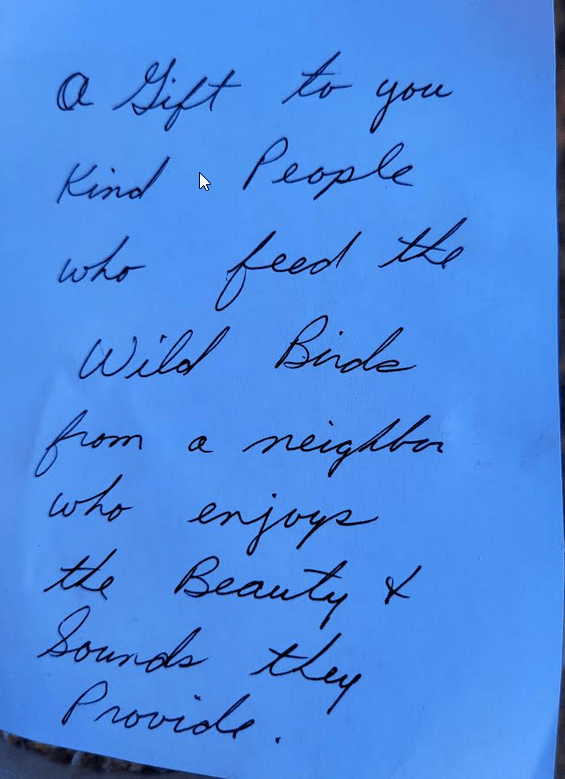 A Gift to you
Kind People
who feed the
Wild Birds
from a neighbor
who enjoys
the Beauty &
Sounds they
Provide.